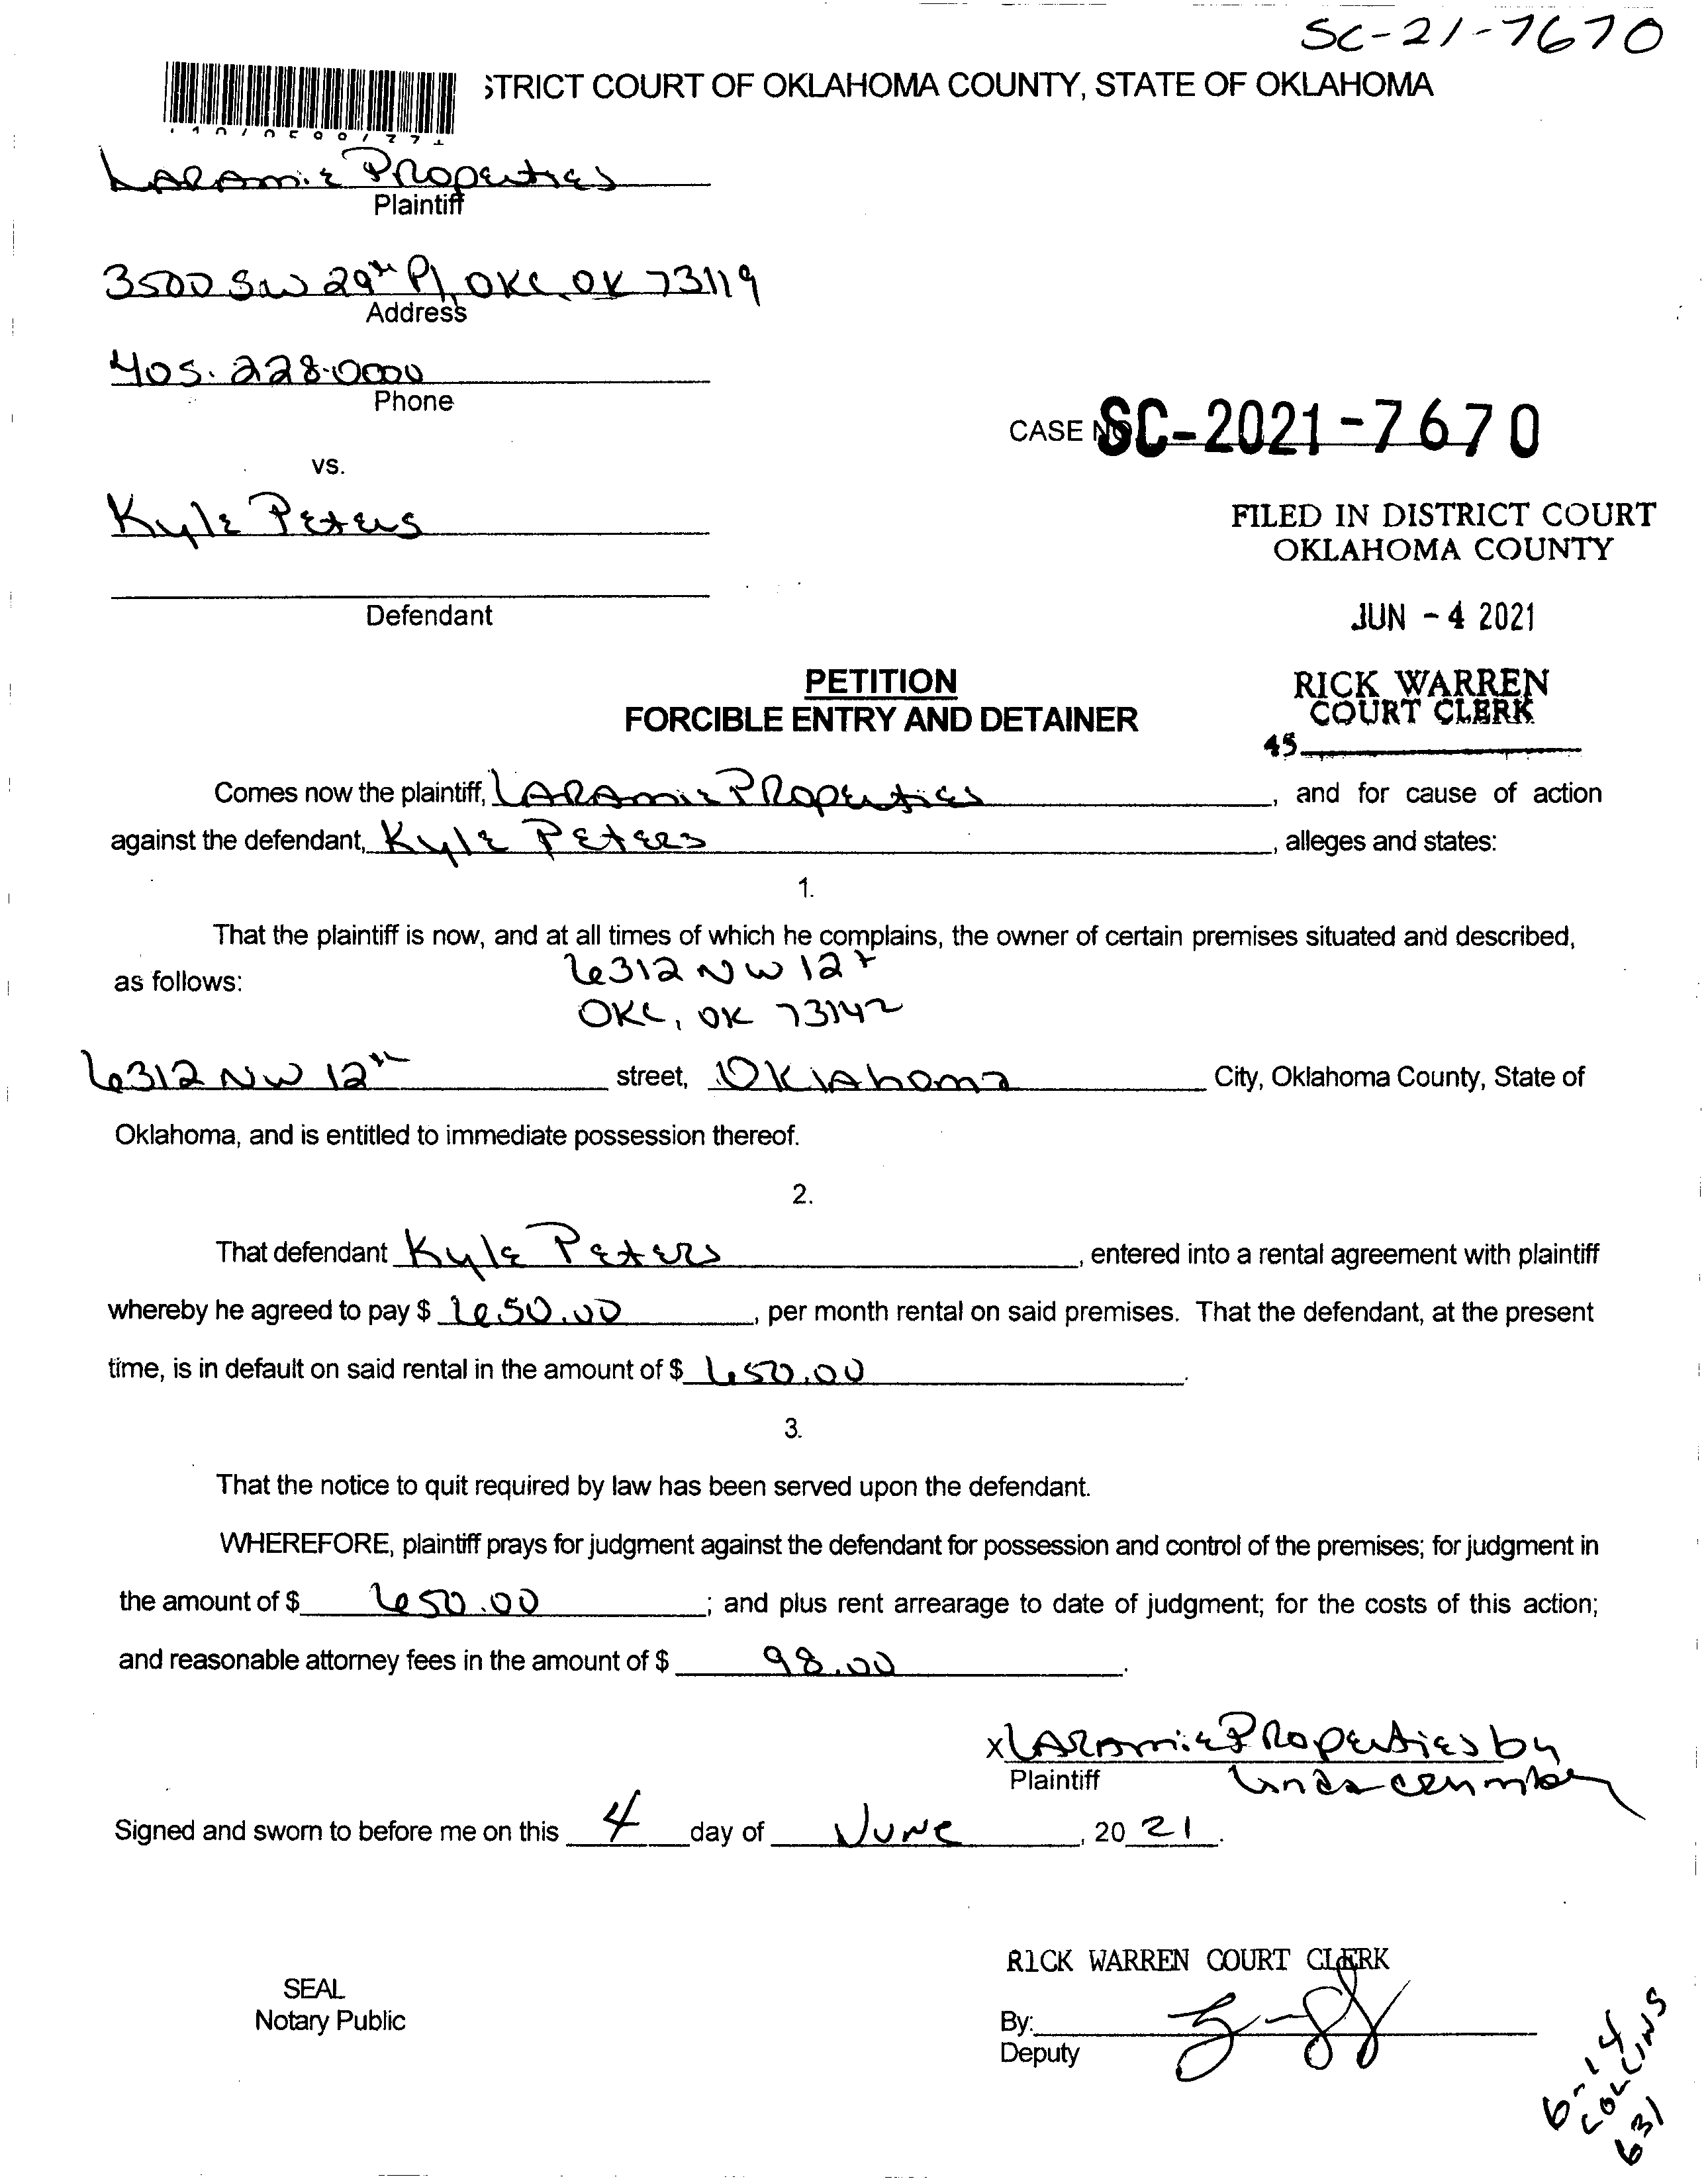 SC-21-7670
STRICT COURT OF OKLAHOMA COUNTY, STATE OF OKLAHOMA
Laramie Properties
Plaintiff
3500 SW 29th Pl, OKC, OK 73119
Address
405.228.0000
Phone
CASE NO SC-2021-7670
vs.
Kyle Peters
FILED IN DISTRICT COURT
OKLAHOMA COUNTY
Defendant
JUN - 4 2021
PETITION
FORCIBLE ENTRY AND DETAINER
RICK WARREN
COURT CLERK
45
Comes now the plaintiff, Laramie Properties, and for cause of action
against the defendant, Kyle Peters, alleges and states:
1.
That the plaintiff is now, and at all times of which he complains, the owner of certain premises situated and described,
as follows:
6312 NW 12th
OKC, OK 73142
6312 NW 12th street, Oklahoma City, Oklahoma County, State of
Oklahoma, and is entitled to immediate possession thereof.
2.
That defendant Kyle Peters, entered into a rental agreement with plaintiff
whereby he agreed to pay $ 650.00, per month rental on said premises. That the defendant, at the present
time, is in default on said rental in the amount of $ 650.00.
3.
That the notice to quit required by law has been served upon the defendant.
WHEREFORE, plaintiff prays for judgment against the defendant for possession and control of the premises; for judgment in
the amount of $ 650.00; and plus rent arrearage to date of judgment; for the costs of this action;
and reasonable attorney fees in the amount of $ 98.00.
x Laramie Properties by
Plaintiff Linda
Signed and sworn to before me on this 4 day of June, 20 21.
RICK WARREN COURT CLERK
SEAL
Notary Public
By:
Deputy
6-14
COLLINS
631